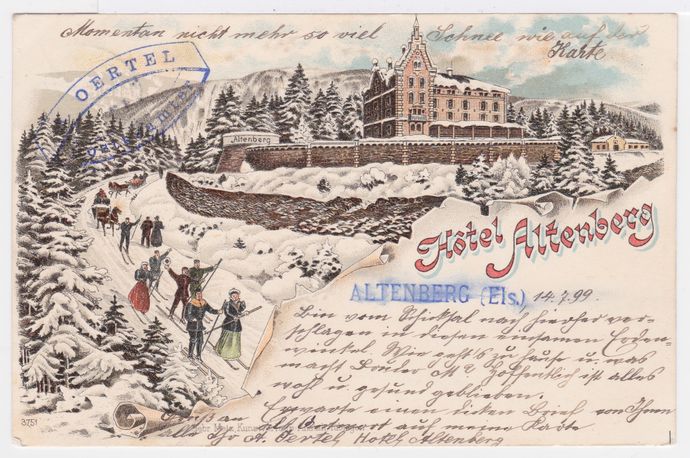 Momentan nicht mehr so viel Schnee wie auf der
Karte
OERTEL
Altenberg
Hôtel Altenberg
ALTENBERG (Els.) 14.7.99.
Bin vom Schicksal nach hierher ver-
schlagen in diesen einsamen Erden-
winkel. Wie geht's zu Hause u. was
macht Bruder M? Hoffentlich ist alles
wohl u. gesund geblieben.
Erwarte einen dicken Brief von Ihnen
Gruß an als Antwort auf meine Karte
alle Ihr A. Oertel Hotel Altenberg
3751